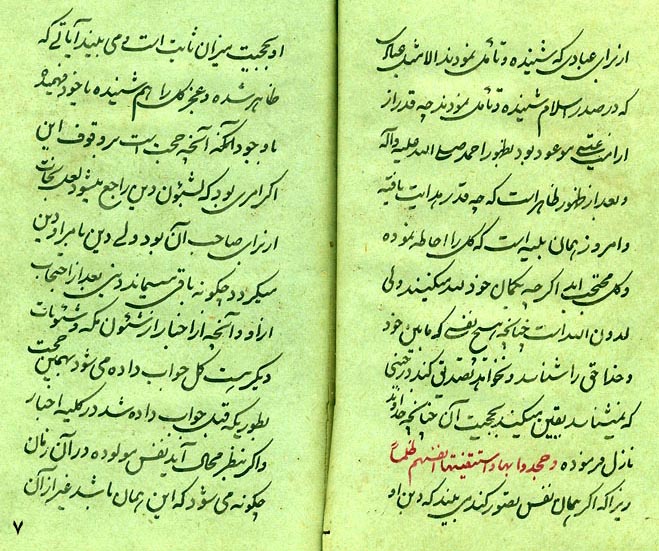 از برای عبادی که شنیده و تأمل نمودند الا مثل عبادی
که در صدر اسلام شنیده و تأمل نمودند چه قدر از
امت عیسی موعود بود بظهور احمد صلی الله علیه و آله
و بعد از ظهور ظاهر است که چه قدر هدایت یافته
و امروز همان بلیه است که کل را احاطه نموده
و کل محتجب اند اگر چه بگمان خود لله میکنند ولی
لدون الله است چنانچه هیچ نفسی که مابین خود
و خدا حق را شناسد و نخواهد تصدیق کند در حینی
که نمیشناسد یقین میکند بحجیت آن چنانچه خداوند
نازل فرموده وجحدوا بها واستیقنتها انفسهم ظلما
زیرا که اگر همان نفس تصور کند می بیند که دین او
او بحجیت میزان ثابت است و می بیند آیاتی که
ظاهر شده و عجز کل را هم شنیده یا خود فهمیده
با وجود آنکه آنچه حجب است بر وقوف این
اگر امری بود که لشئون دین راجع میشود لعل نجات
از برای صاحب آن بود ولی دین بامر او دین
میگردد چگونه باقی میماند دینی بعد از احتجاب
از او و آنچه از اخبار از شئون مکه و شئونات
دیگر هست کل جواب داده می شود بهمین حجت
بطوریکه قبل جواب داده شد در کلیه اخبار
و اگر بنظر محال آید نفس مولوده در آن زمان
چگونه می شود که این همان باشد غیر از آن
۷